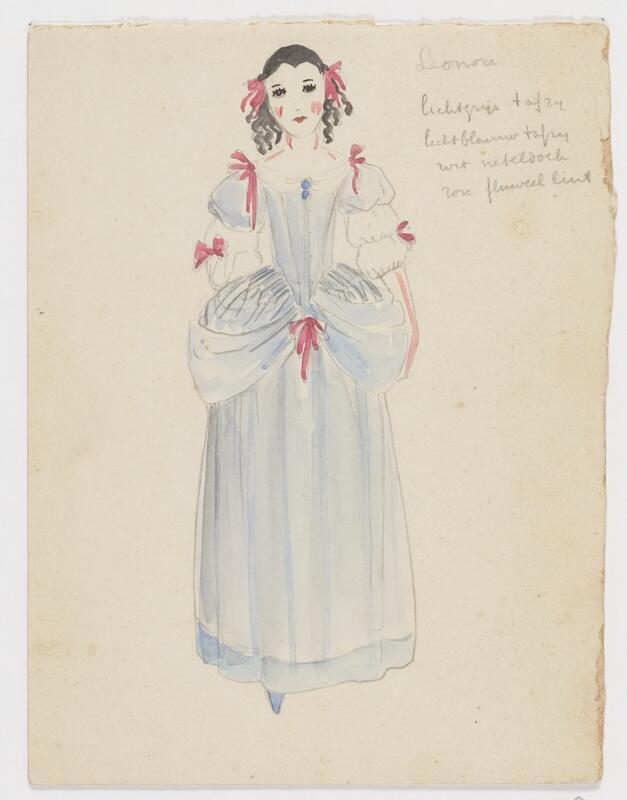 Leonore
lichtgrijs tafzy
lichtblauw tafzy
wit neteldoek
rose fluweel lint